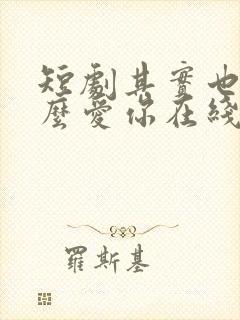 短劇其實也
麼愛你在綫
羅斯基